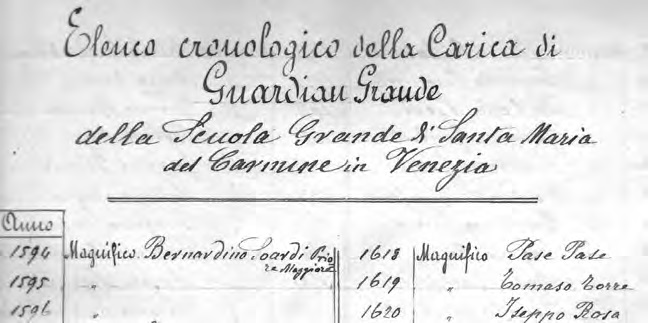 Elenco cronologico della Carica di
Guardian Grande
della Scuola Grande di Santa Maria
del Carmine in Venezia
Anno
1594 Magnifico Bernardino Soardi Prio
re Maggiore
1595 " "
1596 "
1618 Magnifico Pase Pase
1619 " Tomaso Torre
1620 " Iseppo Rosa